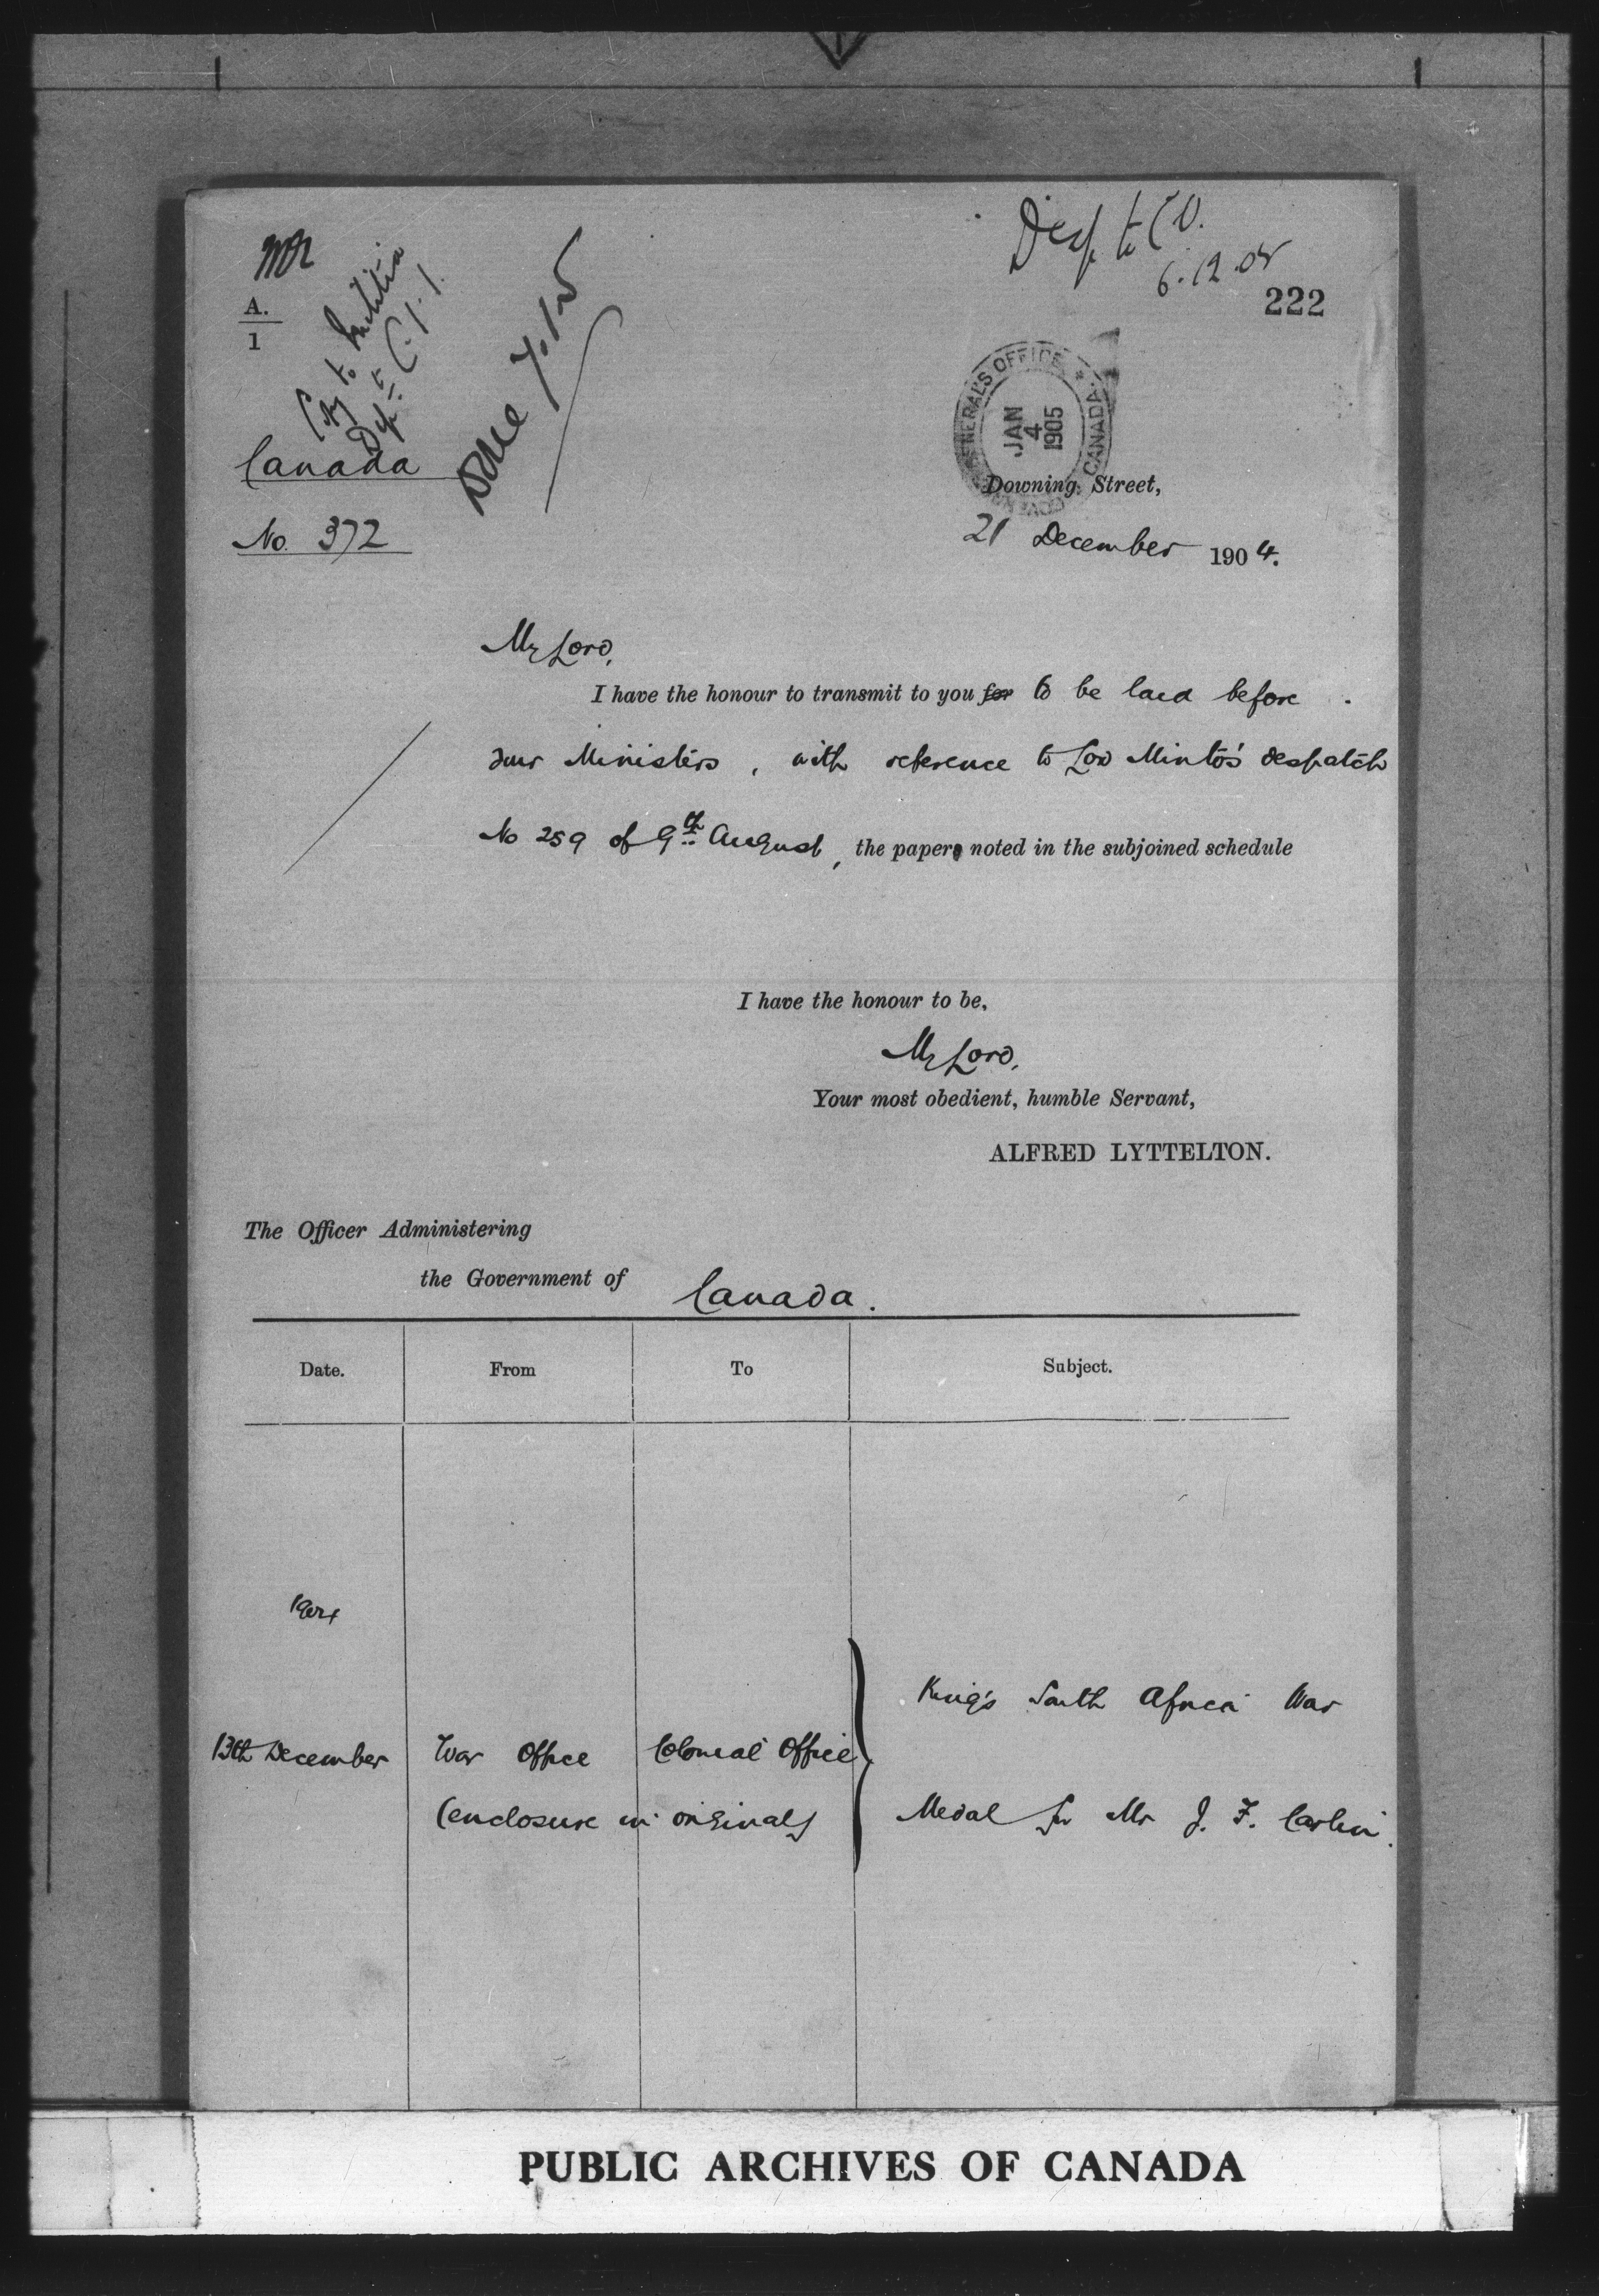 Desp. to C.O.
6.12.05
222
A.
1
Copy to Militia
Dept
Done
GENERAL'S OFFICE * CANADA
JAN
4
1905
Canada
No. 372
Downing Street,
21 December 1904.
My Lord,
I have the honour to transmit to you for to be laid before
your Ministers, with reference to Lord Minto's despatch
No 259 of 9th August, the papers noted in the subjoined schedule
I have the honour to be,
My Lord,
Your most obedient, humble Servant,
ALFRED LYTTELTON.
The Officer Administering
the Government of Canada.
Date. From To Subject.
1904
King's South Africa War
13th December War Office Colonial Office
(enclosure in original) Medal for Mr J. F. Carlin.
PUBLIC ARCHIVES OF CANADA